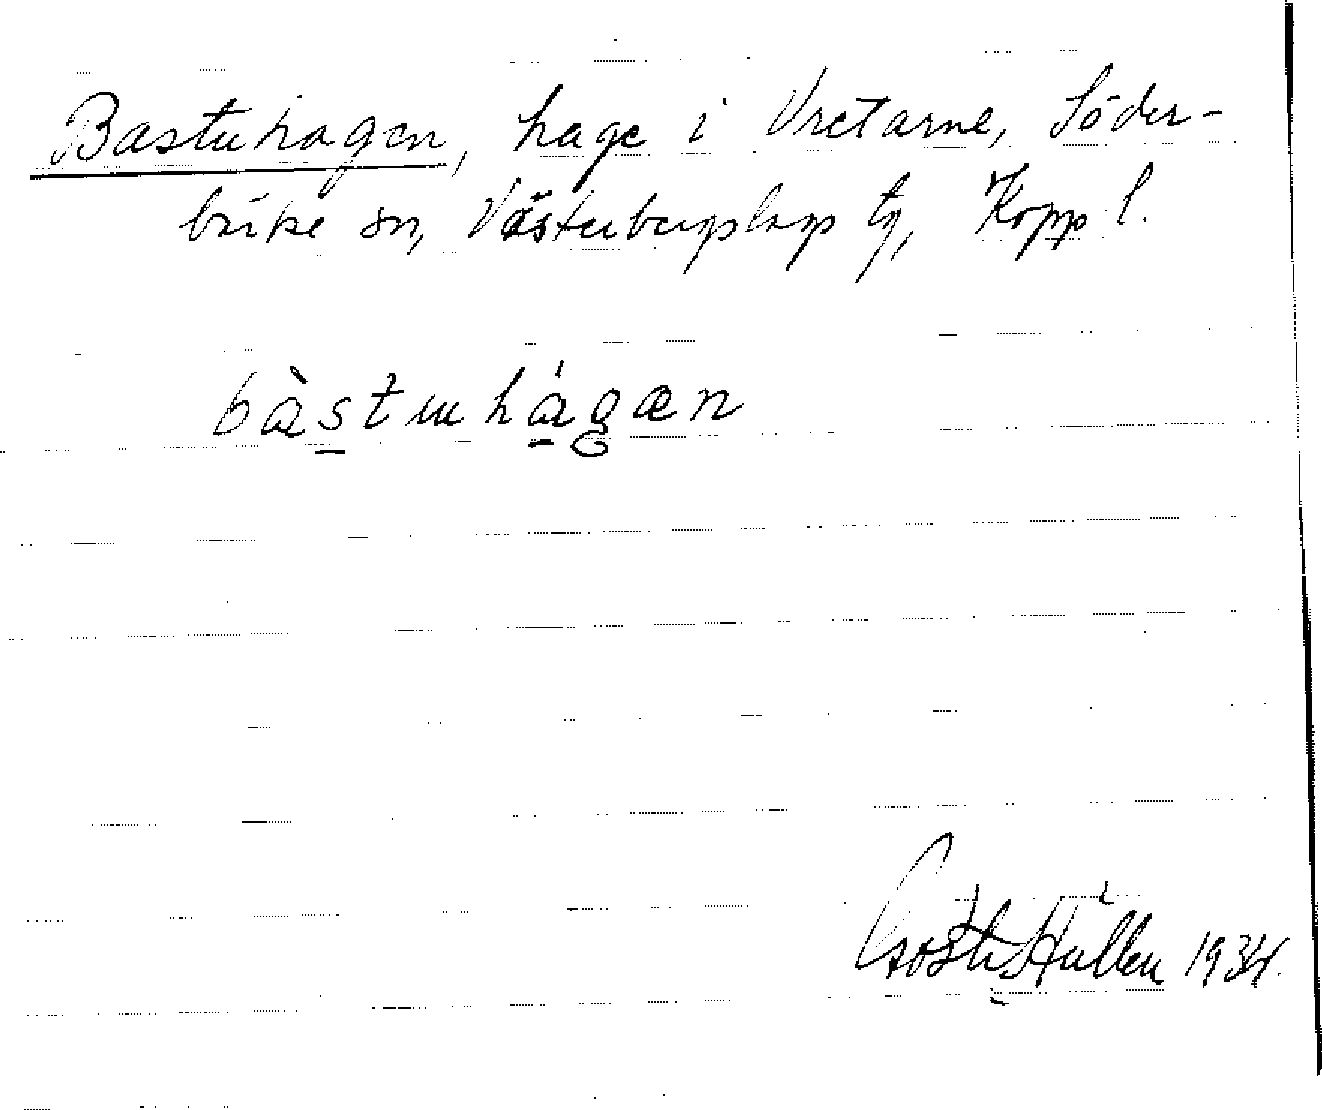 Bastuhagen, hage i Vretarne, Söder-
bärke sn, Västerbergslags tg, Kopp l.
bàstuhágæn
Gösta Hallen 1934.